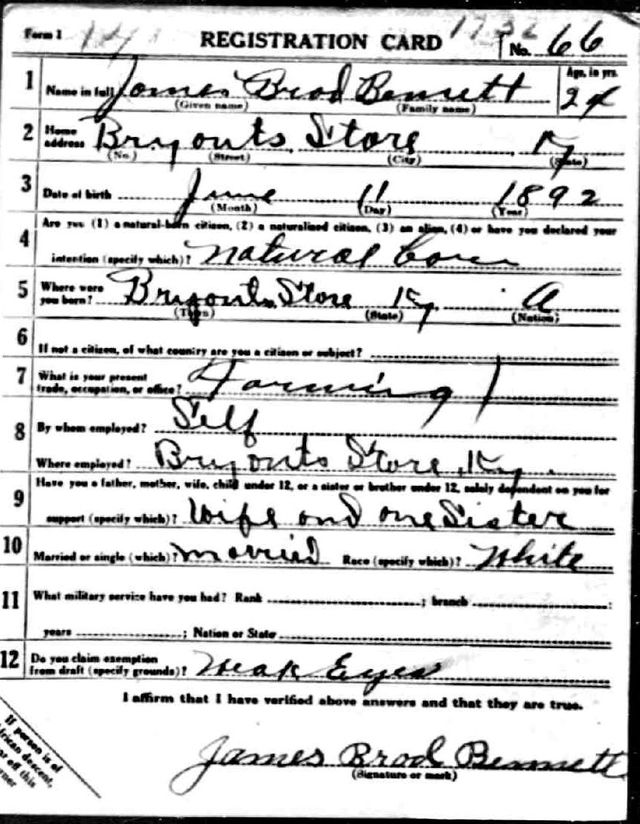 Form 1 REGISTRATION CARD No. 66
1 Name in full James Brod Bennett Age, in yrs. 24
(Given name) (Family name)
2 Home address Bryants Store Ky
(No.) (Street) (City) (State)
3 Date of birth June 11 1892
(Month) (Day) (Year)
4 Are you (1) a natural-born citizen, (2) a naturalized citizen, (3) an alien, (4) or have you declared your
intention (specify which)? natural born
5 Where were you born? Bryants Store Ky A
(Town) (State) (Nation)
6 If not a citizen, of what country are you a citizen or subject?
7 What is your present trade, occupation, or office? Farming
8 By whom employed? Self
Where employed? Bryants Store, Ky.
9 Have you a father, mother, wife, child under 12, or a sister or brother under 12, solely dependent on you for
support (specify which)? Wife and one Sister
10 Married or single (which)? married Race (specify which)? White
11 What military service have you had? Rank ; branch ;
years ; Nation or State
12 Do you claim exemption from draft (specify grounds)? Weak Eyes
I affirm that I have verified above answers and that they are true.
James Brod Bennett
(Signature or mark)
If person is of
African descent,
off this
corner